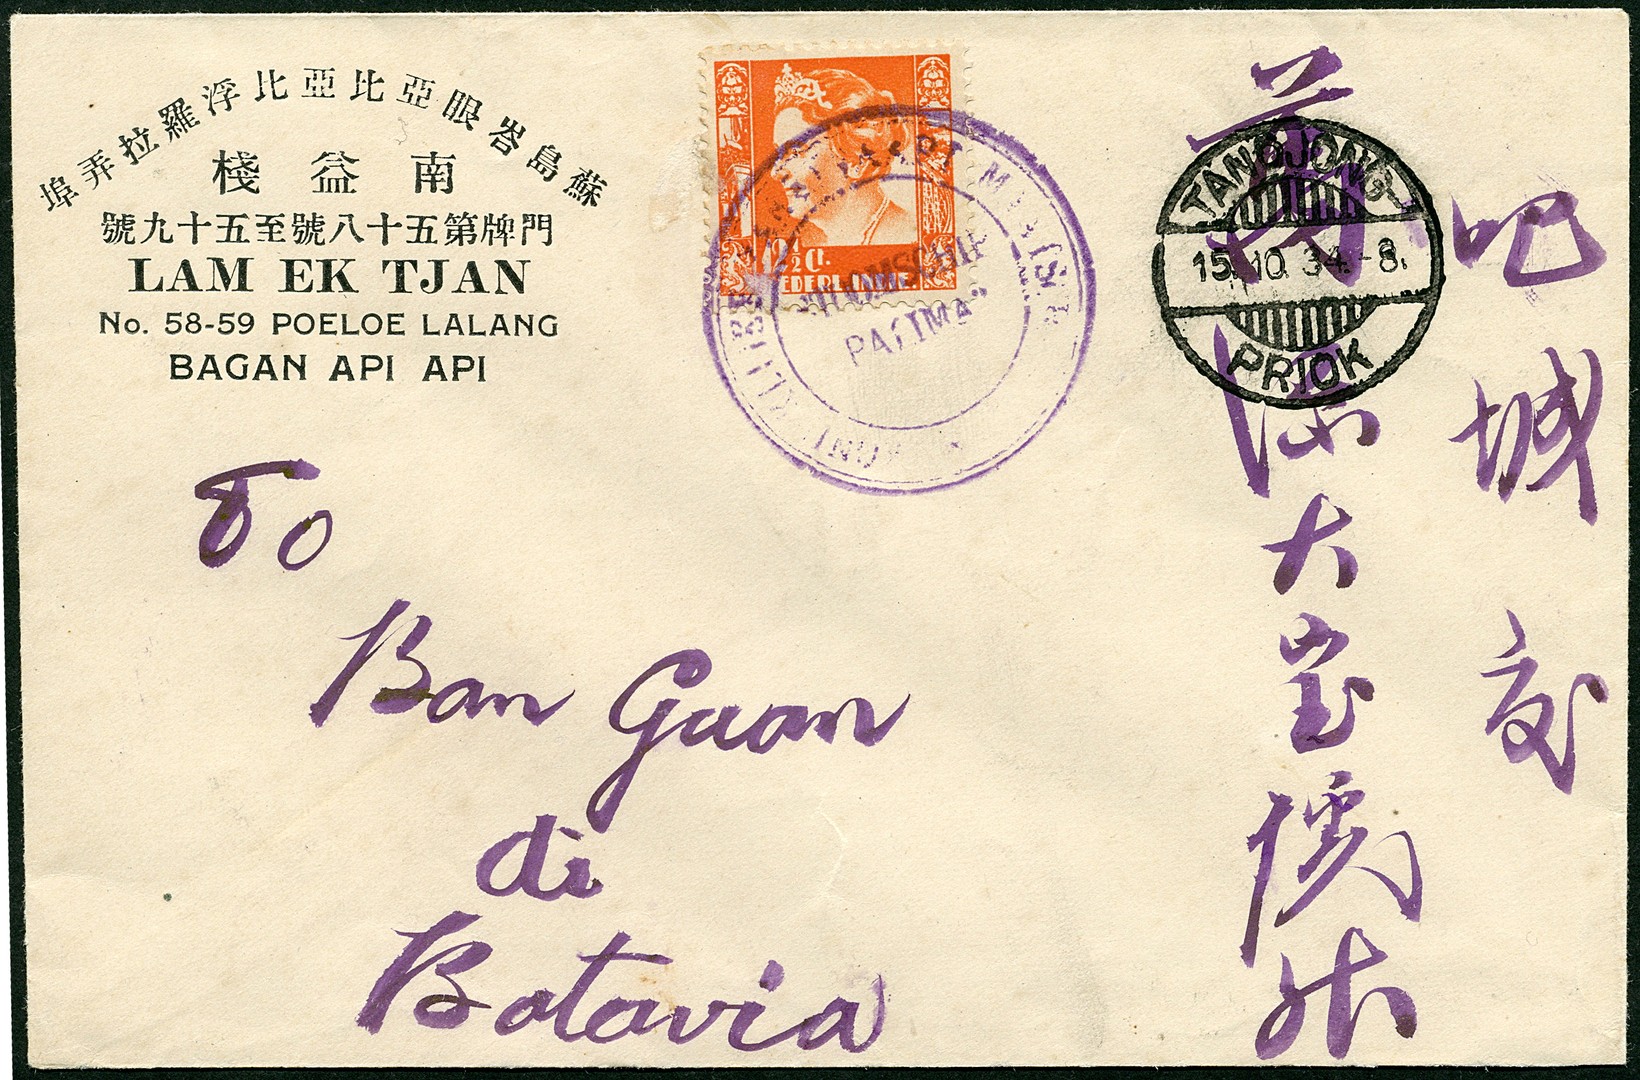 蘇島峇眼亞比亞比浮羅拉弄埠
南益棧
門牌第五十八號至五十九號
LAM EK TJAN
No. 58-59 POELOE LALANG
BAGAN API API
12½ Ct.
NEDERL. INDIE
STOOMSCHIP
PATIMA
TANDJONG-
15.10.34.-8.
PRIOK
To
Ban Guan
di
Batavia
吧城交
源大寶